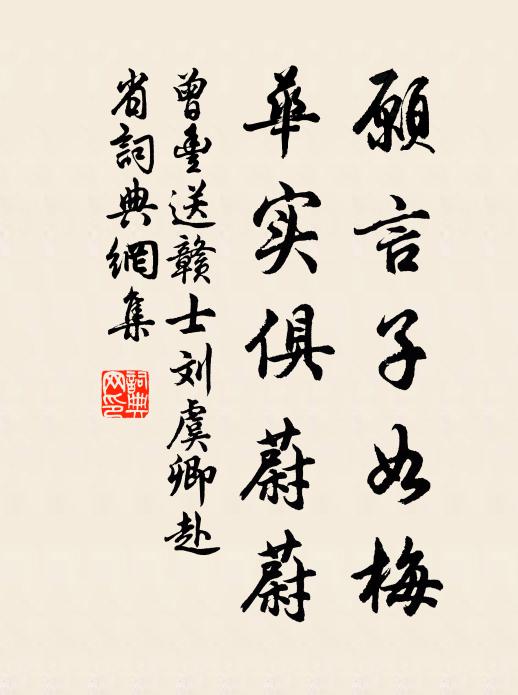 願言子如梅
華实俱蔚蔚
曾豊送赣士刘虞卿赴
省詞典網集
詞典
网印